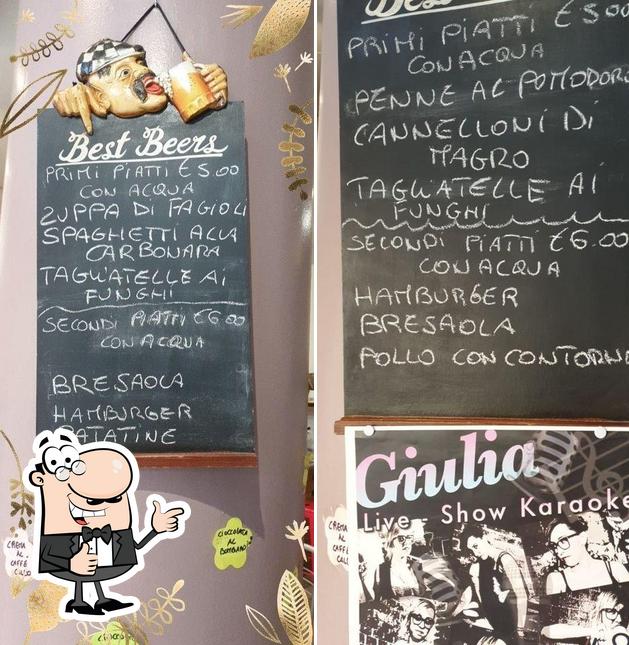 Best Beers
PRIMI PIATTI € 5.00
CON ACQUA
ZUPPA DI FAGIOLI
SPAGHETTI ALLA
CARBONARA
TAGLIATELLE AI
FUNGHI
SECONDI PIATTI €6.00
CON ACQUA
BRESAOLA
HAMBURGER
PATATINE
CREMA
AL
CAFFÈ
CIOCCOLATA
AL
Best
PRIMI PIATTI € 5.00
CON ACQUA
PENNE AL POMODORO
CANNELLONI DI
MAGRO
TAGLIATELLE AI
FUNGHI
SECONDI PIATTI €6.00
CON ACQUA
HAMBURGER
BRESAOLA
POLLO CON CONTORNO
Giulia
Live - Show Karaoke
CREMA
AL
CAFFÈ